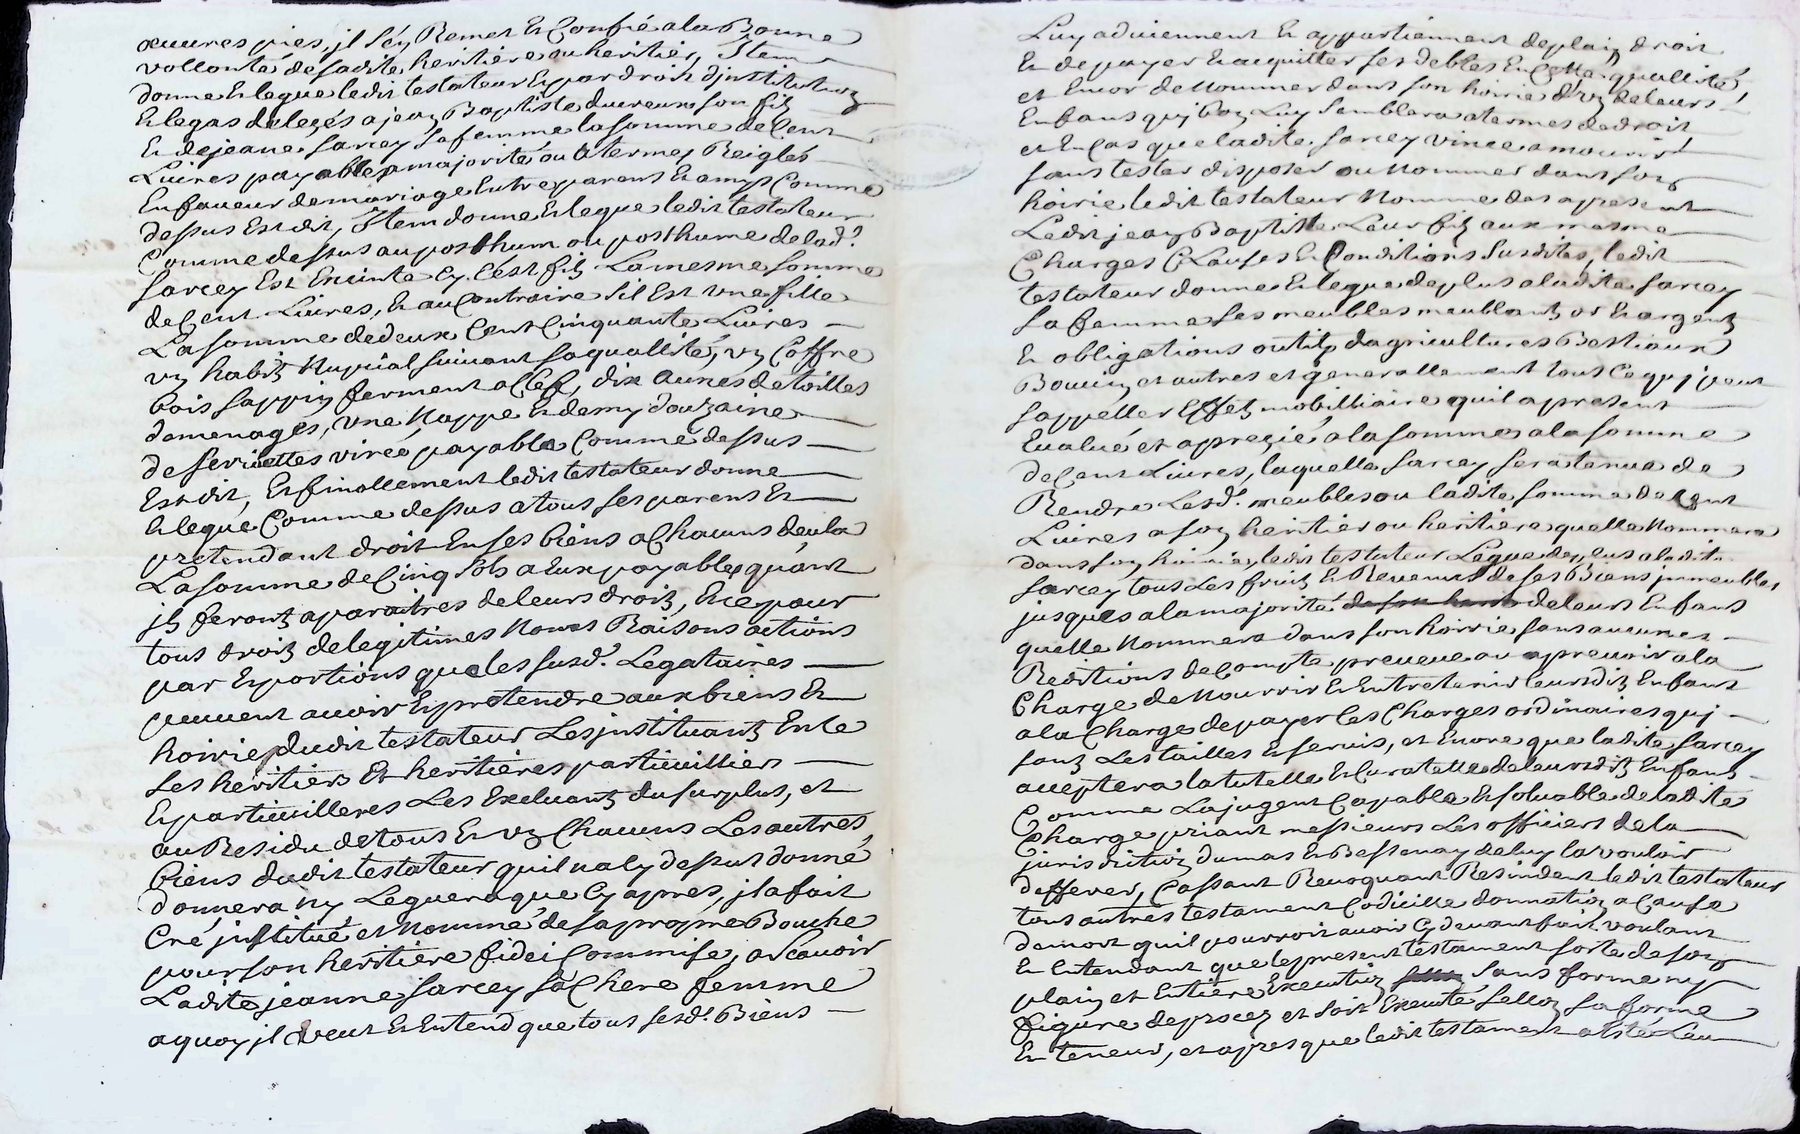 œuures pies, jl s'éz Remet Et Confie a la Bonne
vollonté de sadite heritiere ou heritier, Jtem
donne Et legue ledit testateur Et par droit djnstitution
Et legas delezés a jean Baptiste duvreux son filz
Et de jeane sarcey sa femme la somme de Cent
Liures payables a majorité ou a termes Reiglés
En faueur de mariage Entre parens Et amys Comme
dessus Est dit, Jtem donne Et legue ledit testateur
Comme dessus au posthum ou posthume de lad.
sarcey Est Enceinte Cy c'est filz La mesme somme
de Cent Liures, Et au Contraire sil Est vne fille
La somme de deux Cent Cinquante Liures
vz habitz Nupcial suiuant sa quallité, vz Coffre
bois sappin ferment a Clef, dix aunes de toilles
de menages, vne Nappe Et demy douzaine
de seruiettes virée, payable Comme dessus
Est dit, Et finallement ledit testateur donne
Et legue Comme dessus a tous ses parens Et
pretendant droit En ses biens a Chacuns deula
La somme de Cinq sols a Eux payables quant
jls feront aparaitres de leurs droitz, Et ce pour
tous droitz de legitimes Noms Raisons actions
par Et portions que les susd. Legataires
peuuent auoir Et pretendre aux biens Et
hoirie dudit testateur Les jnstituantz En ce
ses heritiers Et heritieres particuilliers
Et particuilleres Les Excluantz du surplus, et
au Residu de tous Et vz Chacuns Les autres
biens dudit testateur quil na Cy dessus donné
donnera ny Leguera que Cy apres, jl a fait
Cré jnstitué et Nommé de sa propre Bouche
pour son heritiere fidei Commise, a scauoir
Ladite jeanne sarcey sa Chere femme
a quoy jl veut Et Entend que tous sesd. Biens
Luy aduiennent Et appartiennent de plain droit
Et de payer Et acquitter ses debtes En cette quallité,
et Encor de Nommer dans son hoirie d'vz de leurs
Enfans qui bon Luy semblera a termes de droit
et En Cas que ladite sarcey vince a mourir
sans tester disposer ou Nommer dans son
hoirie ledit testateur Nomme des a present
Ledit jean Baptiste Leur filz aux mesme
Charges Clauses Et Conditions susdites, ledit
testateur donne Et legue de plus a ladite sarcey
sa femme ses meubles meublantz or Et argentz
Et obligations outilz dagricultures Bestiaux
Bouuins et autres et generallement tous ce qui peut
sappeller Effetz mobilliaire quil a present
Eualué et apregié a la somme a la somme
de Cent Liures, laquelle sarcey sera tenue de
Rendre Lesd. meubles ou ladite somme de Cent
Liures a son heritier ou heritiere quelle Nommera
dans son hoirie, ledit testateur Legue de plus a ladite
sarcey tous Les fruitz Et Reuenus de ses Biens jmmeubles
jusques a la majorité de leurs Enfans
quelle Nommera dans son hoirie sans aucunes
Reditions de Compte preueue ou a preuoir a la
Charge de Nourrir Et Entretenir leursditz Enfans
a la Charge de payer les Charges ordinaires qui
sont Les tailles Et seruis, et Encore que ladite sarcey
acceptera la tutelle Et Curatelle de leursditz Enfans
Comme La jugent Capable Et soluable de ladite
Charge priant messieurs Les officiers de la
jurisdiction dumas Et Bessenay de luy la vouloir
defferer, Cassant Reuoquant Resindent ledit testateur
tous autres testament Codicille donnation a Cause
de mort quil pourroit auoir Cy deuant fait voulant
Et Entendant que le present testament sorte de son
plain et Entiere Execution sans forme ny
figure de procez et soit Executé sellon sa forme
Et teneur, et apres que ledit testament a esté Leu